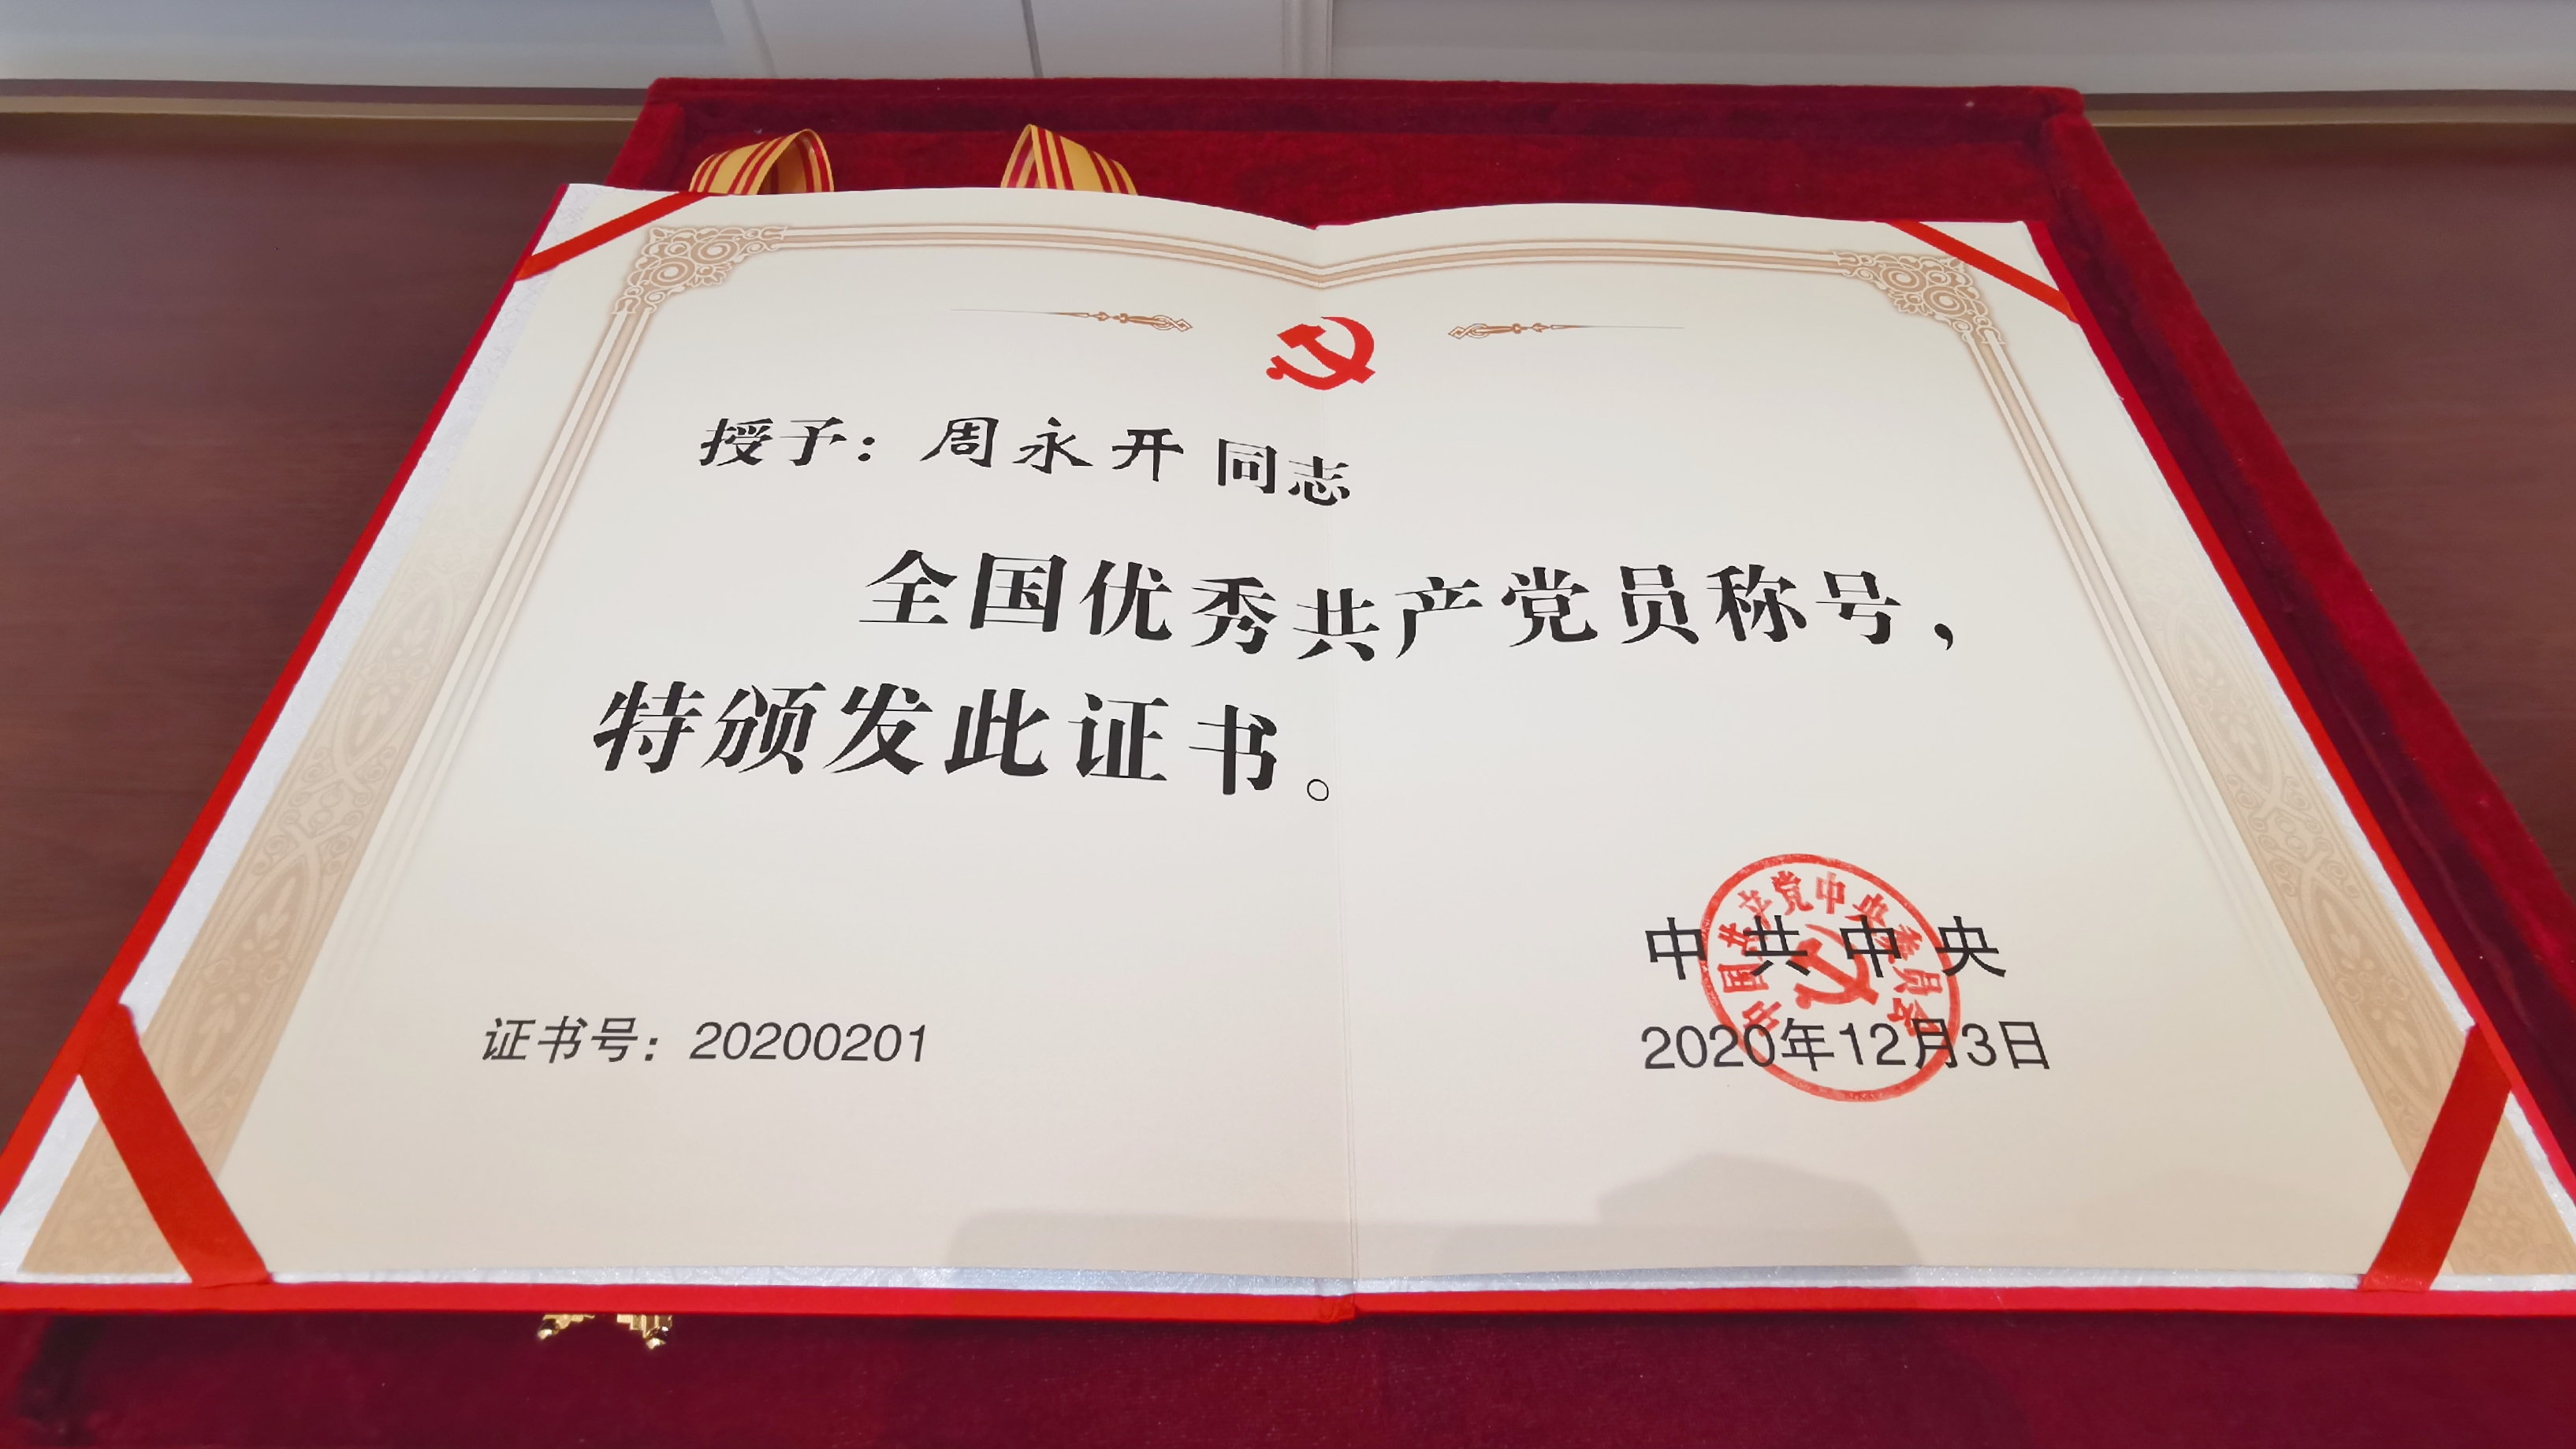 授予：周永开同志
全国优秀共产党员称号，
特颁发此证书。
中国共产党中央委员会
中共中央
证书号：20200201
2020年12月3日